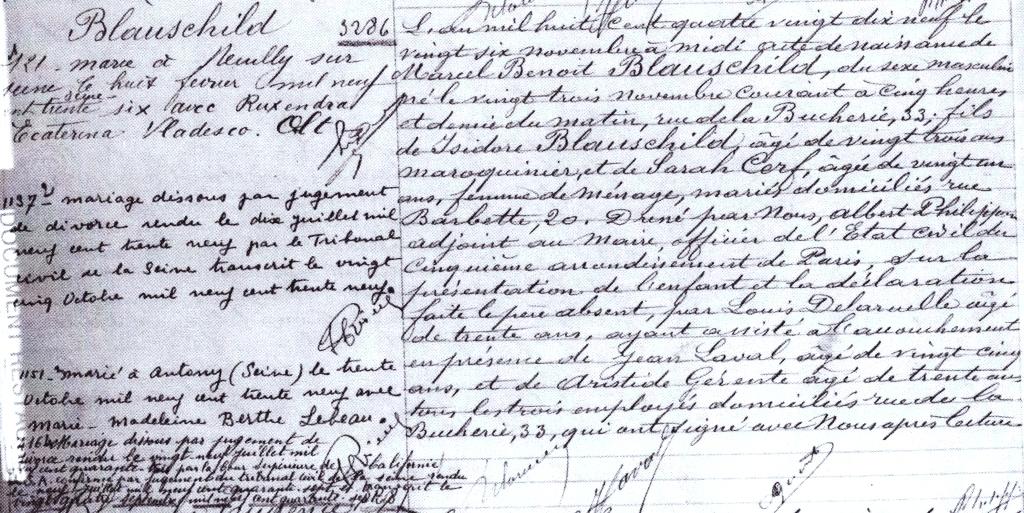 Blauschild
3286
marié à Neuilly sur
Seine le huit février mil neuf
cent trente six avec Ruxendra
Ecaterina Vladesco. Olt
mariage dissous par jugement
de divorce rendu le dix juillet mil
neuf cent trente neuf par le Tribunal
civil de la Seine transcrit le vingt
cinq Octobre mil neuf cent trente neuf.
Marié à Antony (Seine) le trente
Octobre mil neuf cent trente neuf avec
Marie-Madeleine Berthe Lebeau.
Mariage dissous par jugement de
divorce rendu le vingt neuf juillet mil
neuf cent quarante par la Cour Supérieure de Californie
jugement du tribunal civil de la Seine rendu
mil neuf cent quarante transcrit le
vingt quatre septembre mil neuf cent quarante
L'an mil huit cent quatre vingt dix neuf le
vingt six novembre à midi acte de naissance de
Marcel Benoît Blauschild, du sexe masculin
né le vingt trois novembre courant à cinq heures
et demie du matin, rue de la Bucherie, 33; fils
de Isidore Blauschild, âgé de vingt trois ans
maroquinier, et de Sarah Cerf, âgée de vingt un
ans, femme de ménage, mariés domiciliés rue
Barbette, 20. Dressé par Nous, albert Philippon
adjoint au Maire, officier de l'Etat civil du
Cinquième arrondissement de Paris, sur la
présentation de l'enfant et la déclaration
faite le père absent, par Louis Delaruelle âgé
de trente ans, ayant assisté à l'accouchement
en présence de Jean Laval, âgé de vingt cinq
ans, et de Aristide Gérente âgé de trente ans
tous les trois employés domiciliés rue de la
Bucherie, 33, qui ont signé avec Nous après lecture
Laval
DOCUMENT